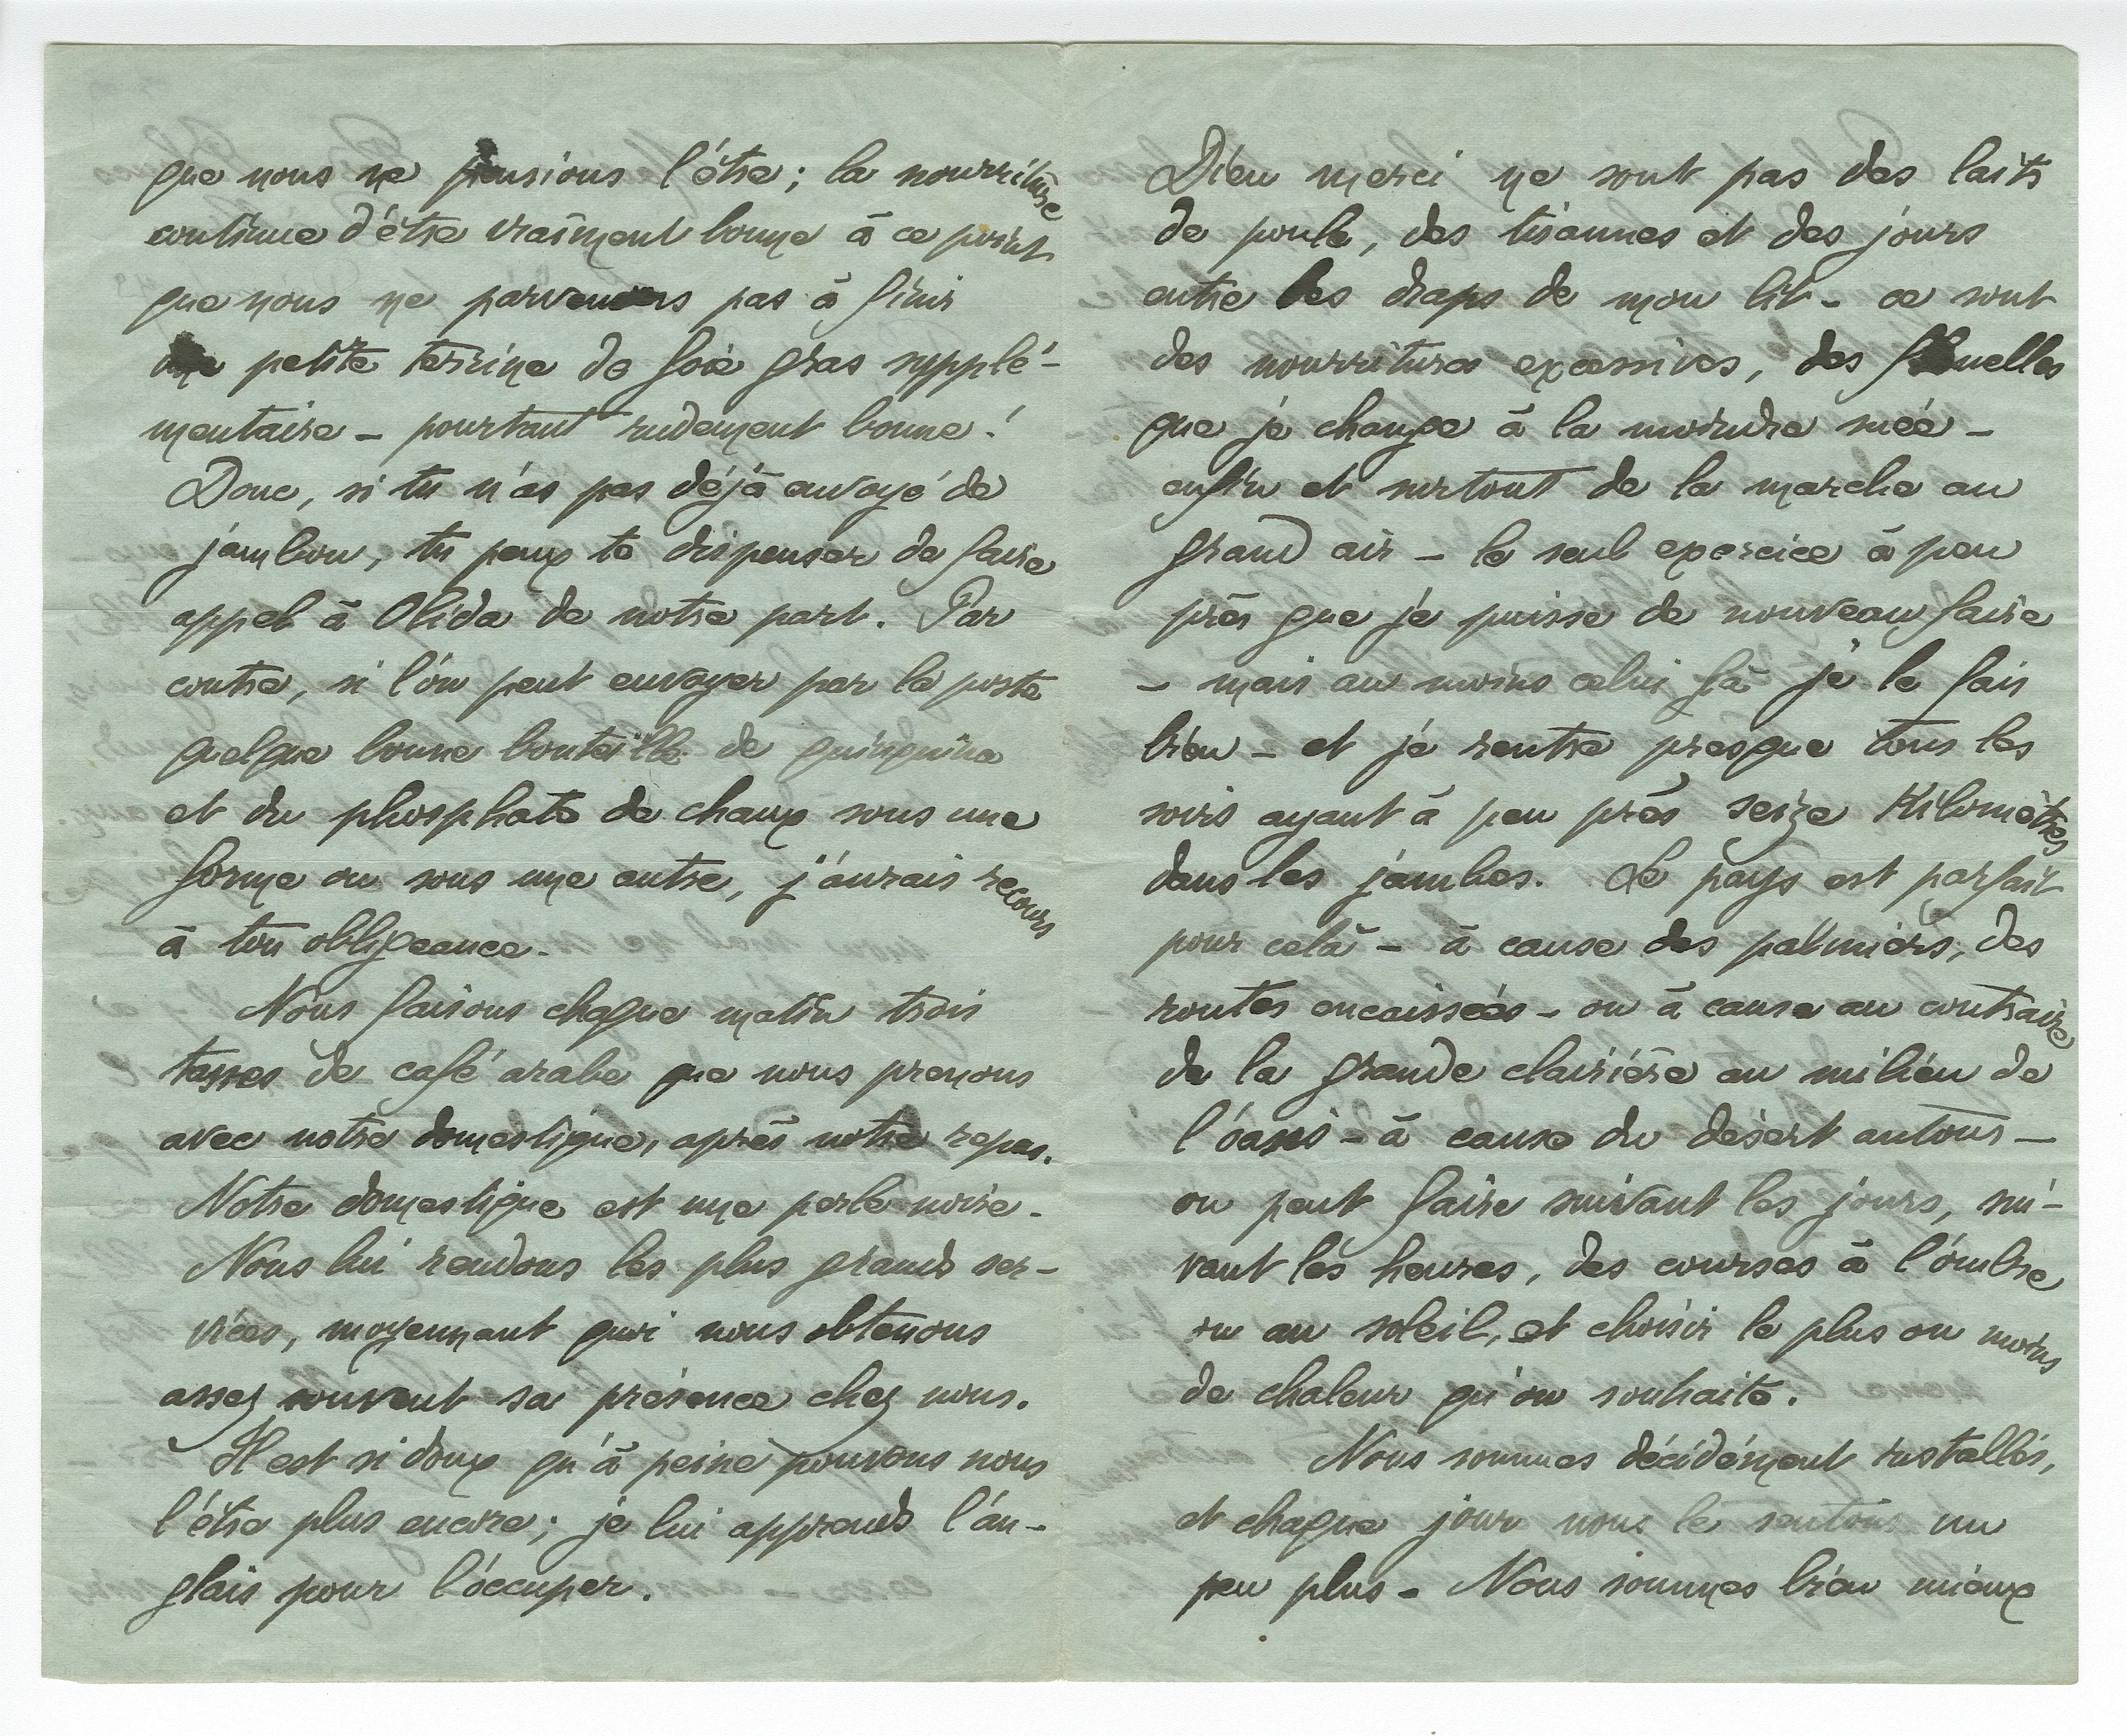 que nous ne pensions l'être ; la nourriture
continue d'être vraiment bonne à ce point
que nous ne parvenons pas à finir
une petite terrine de foie gras supplé-
mentaire – pourtant rudement bonne !
Donc, si tu n'as pas déjà envoyé de
jambon, tu peux te dispenser de faire
appel à Olida de notre part. Par
contre, si l'on peut envoyer par la poste
quelque bonne bouteille de quinquina
et du phosphate de chaux sous une
forme ou sous une autre, j'aurais recours
à ton obligeance.
Nous faisons chaque matin trois
tasses de café arabe que nous prenons
avec notre domestique, après notre repas.
Notre domestique est une perle noire.
Nous lui rendons les plus grands ser-
vices, moyennant quoi nous obtenons
assez souvent sa présence chez nous.
Il est si doux qu'à peine pouvons nous
l'être plus encore ; je lui apprends l'an-
glais pour l'occuper.
Dieu merci ne sont pas des laits
de poule, des tisannes et des jours
entre les draps de mon lit – ce sont
des nourritures excessives, des flanelles
que je change à la moindre suée –
enfin et surtout de la marche au
grand air – le seul exercice à peu
près que je puisse de nouveau faire
– mais au moins celui là je le fais
bien – et je rentre presque tous les
soirs ayant à peu près seize Kilomètres
dans les jambes. Le pays est parfait
pour celà – à cause des palmiers, des
routes encaissées – ou à cause au contraire
de la grande clairière au milieu de
l'oasis – à cause du désert autour –
on peut faire suivant les jours, sui-
vant les heures, des courses à l'ombre
ou au soleil, et choisir le plus ou moins
de chaleur qu'on souhaite.
Nous sommes décidément installés,
et chaque jour nous le sentons un
peu plus – Nous sommes bien mieux